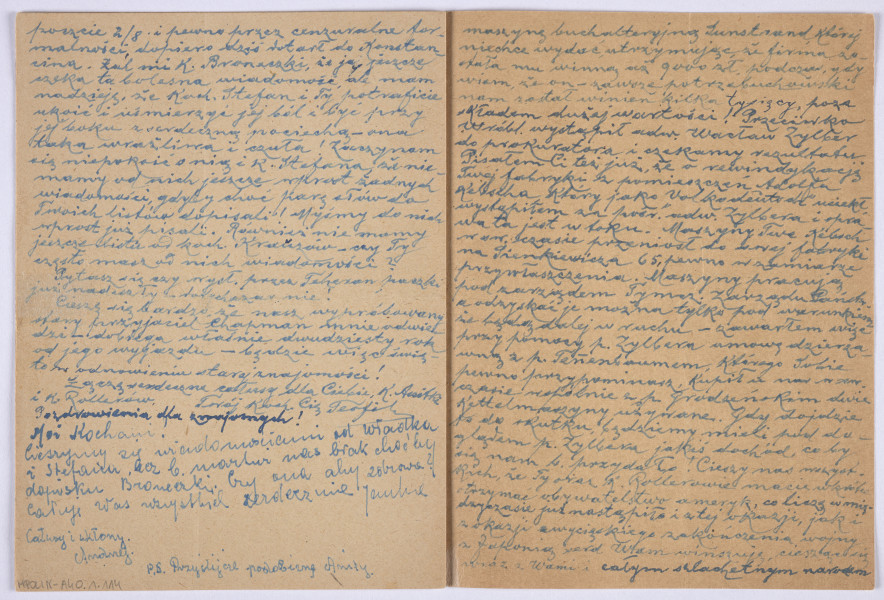 poszcie 2/8. i pewno przez cenzuralne for-
malności, dopiero dziś dotarł do Konstan-
cina. Żal mi K. Broneczki, że ją jeszcze
czeka ta bolesna wiadomość ale mam
nadzieję, że Koch. Stefan i Ty potraficie
ukoić i uśmierzyć jej ból i być przy
jej boku z serdeczną pociechą - ona
taka wrażliwa i czuła! Zaczynam
się niepokoić o nią i K. Stefana że nie-
mamy od nich jeszcze wprost żadnych
wiadomości, gdyby choć parę słów do
Twoich listów dopisali! Myśmy do nich
wprost już pisali. Również nie mamy
jeszcze listu od koch. - czy Ty
często masz od nich wiadomości?
Pytasz się czy wysł. przez Teheran paczki
już nadeszły - dotychczas nie!
Cieszę się bardzo że nasz wypróbowany
stary przyjaciel Chapman mnie odwie-
dzi - dobiega właśnie dwudziesty rok
od jego wyjazdu - będzie więc świę-
to w odnowieniu starej znajomości!
Łączę serdeczne całusy dla Ciebie, K.
i K. Rollerów. Twój Koch. Cię Teofil
Pozdrowienia dla znajomych!
Moi Kochani.
Cieszymy się wiadomościami od Władka
i Stefana, lecz b. martwi nas brak choćby
dopisku Broneczki. Czy ona aby zdrowa?
Całuję Was wszystkich serdecznie Janina
Całusy i ukłony.
Andrzej
P.S. Przyślijcie podobiznę
maszynę buchalteryjną Sunstrand, której
niechce wydać utrzymując że firma zo-
stała mu winną aż 9000 zł, podczas, gdy
wiem, że on - zawsze potrzebuchowski
nam został winien kilka tysięcy, poza
składem dużej wartości! Przeciwko
wystąpił adw. Wacław Zylber
do prokuratora i czekamy rezultatu.
Pisałem Ci też już, że o rewindykację
Twej fabryki z pomieszczeń Adolfa
Kebscha, który jako Volksdeutsch uciekł
wystąpiłem za pośr. adw. Zylbera i spra-
wa ta jest w toku. Maszyny Twe Kebsch
w swoim czasie przeniósł do swej fabryki
na Sienkiewicza 65, pewno w zamiarze
przywłaszczenia. Maszyny pracują
pod zarządem Tymcz. Zarządu Państw.
a odzyskać je można tylko pod warunkiem
że będą dalej w ruchu - zawarłem więc
przy pomocy p. Zylbera umowę dzierża-
wną z p. Tenenbaumem, którego Sobie
pewno przypominasz. Kupił u nas w sw.
czasie wspólnie z p. Grodzeńskim dwie
Kettelmaszyny używane. Gdy dojdzie
to do skutku będziemy mieli pod do-
glądem p. Zylbera jakiś dochód, co by
się nam b. przydało! Cieszy nas wszyst-
kich, że Ty oraz K. Rollerowie macie wkrótce
otrzymać obywatelstwo ameryk, co liczę w mię-
dzyczasie już nastąpiło i z tej okazji, jak i
z okazji zwycięskiego zakończenia wojny
z Japonią serd. Wam winszuję, ciesząc się
wraz z Wami i całym szlachetnym narodem